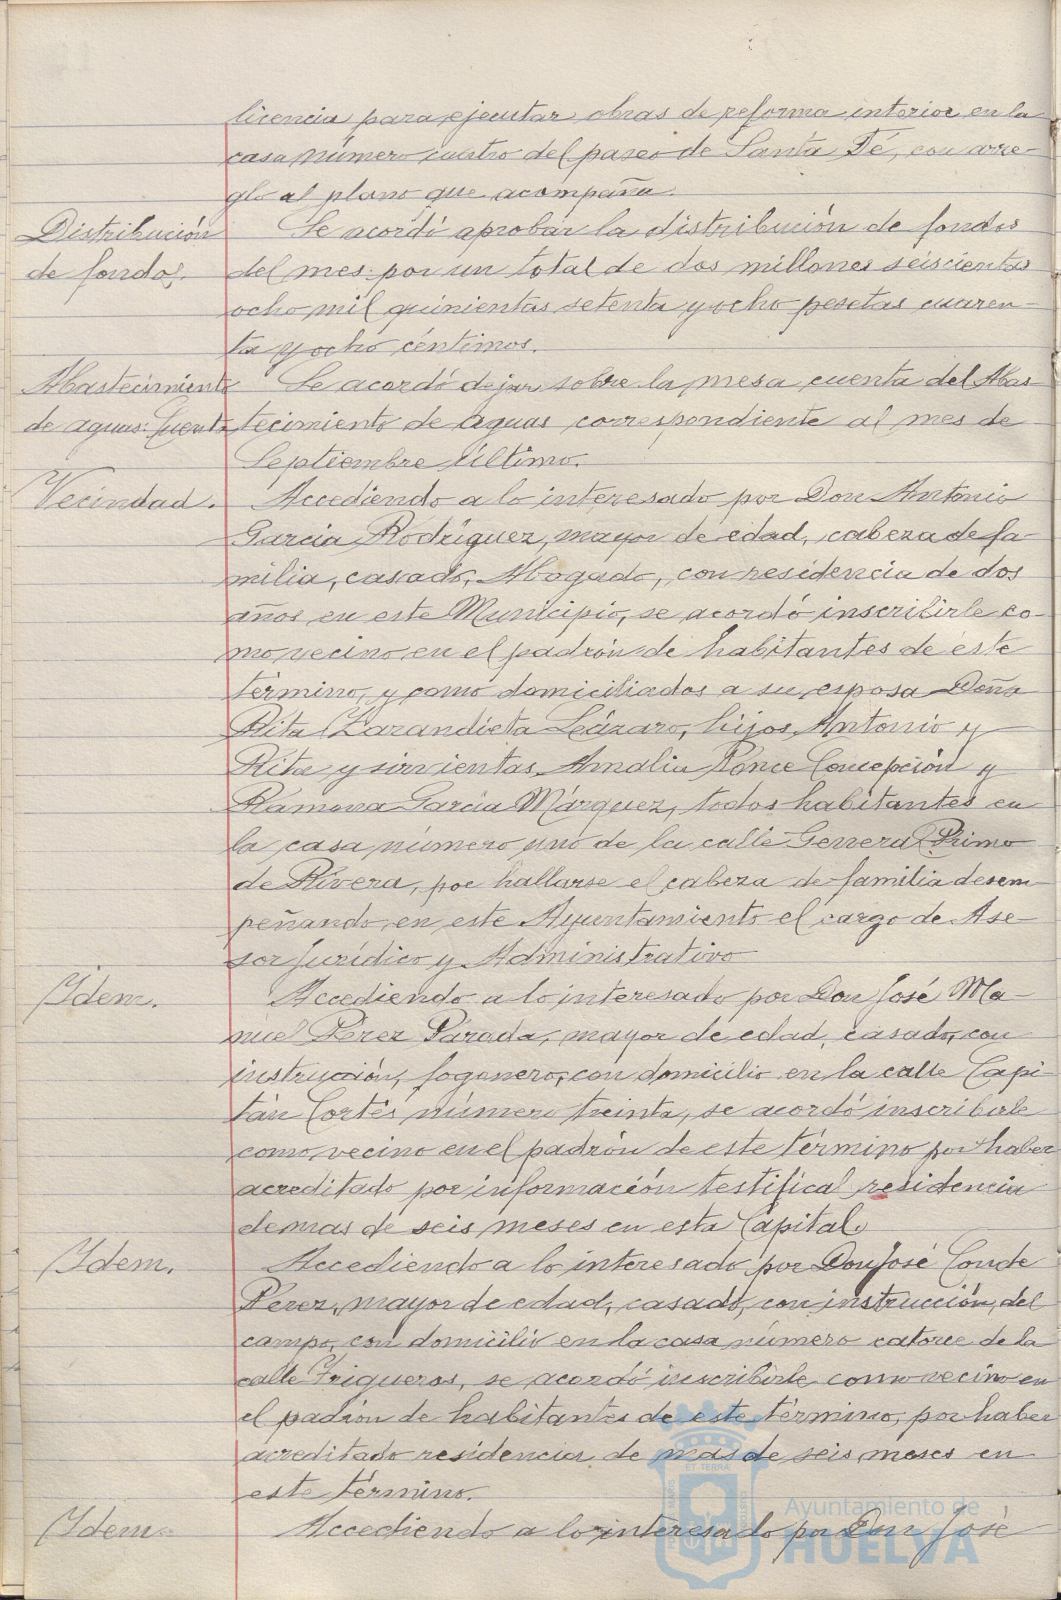 licencia para ejecutar obras de reforma interior en la
casa número cuatro del paseo de Santa Fé, con arre-
glo al plano que acompaña.
Distribución
de fondos.
Se acordó aprobar la distribución de fondos
del mes por un total de dos millones seiscientas
ocho mil quinientas setenta y ocho pesetas cuaren-
ta y ocho céntimos.
Abastecimiento
de aguas: Cuenta
Se acordó dejar sobre la mesa cuenta del Abas-
tecimiento de aguas correspondiente al mes de
Septiembre último.
Vecindad.
Accediendo a lo interesado por Don Antonio
García Rodríguez, mayor de edad, cabeza de fa-
milia, casado, Abogado, con residencia de dos
años en este Municipio, se acordó inscribirle co-
mo vecino en el padrón de habitantes de este
término, y como domiciliados a su esposa Doña
Rita Zarandieta Lázaro, hijos Antonio y
Rita y sirvientas Amalia Ponce Concepción y
Ramona García Márquez, todos habitantes en
la casa número uno de la calle General Primo
de Rivera, por hallarse el cabeza de familia desem
peñando en este Ayuntamiento el cargo de Ase-
sor Jurídico y Administrativo
Idem.
Accediendo a lo interesado por Don José Ma-
nuel Pérez Parada, mayor de edad, casado, con
instrucción, fogonero, con domicilio en la calle Capi-
tán Cortés número treinta, se acordó inscribirle
como vecino en el padrón de este término por haber
acreditado por información testifical residencia
de mas de seis meses en esta Capital.
Idem.
Accediendo a lo interesado por Don José Conde
Pérez, mayor de edad, casado, con instrucción, del
campo, con domicilio en la casa número catorce de la
calle Trigueros, se acordó inscribirle como vecino en
el padrón de habitantes de este término, por haber
acreditado residencia de mas de seis meses en
este término.
Idem.
Accediendo a lo interesado por Don José
Ayuntamiento de
HUELVA